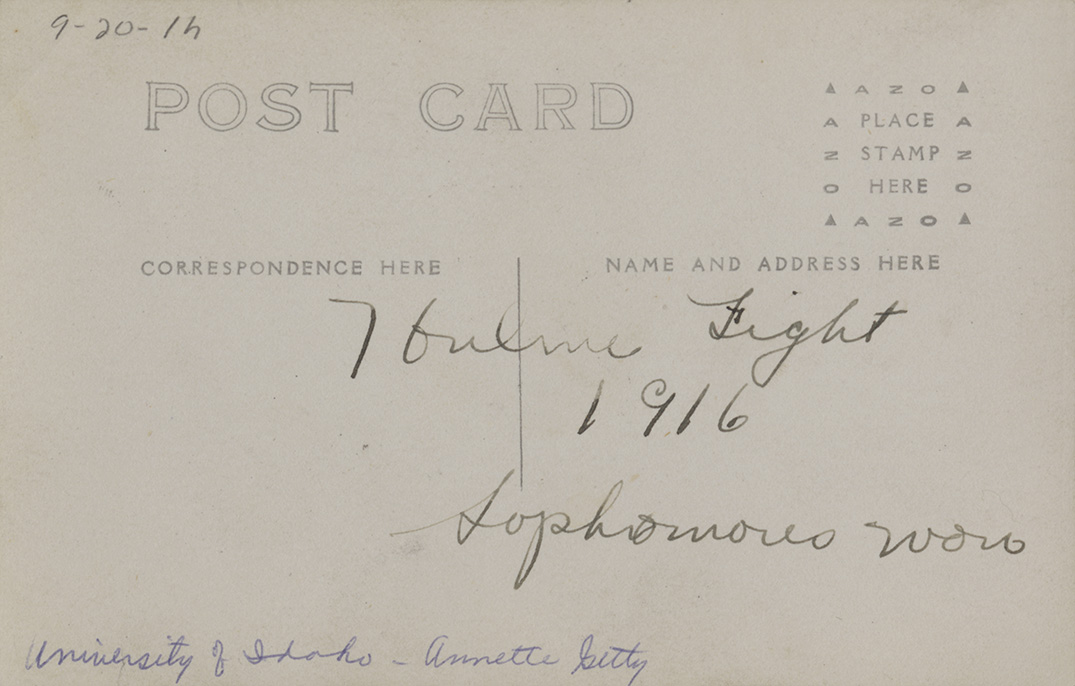 9-20-1h
POST CARD
AZO
A PLACE A
Z STAMP Z
O HERE O
AZO
CORRESPONDENCE HERE
NAME AND ADDRESS HERE
Hulme Fight
1916
Sophomores won
University of Idaho - Annette Getty